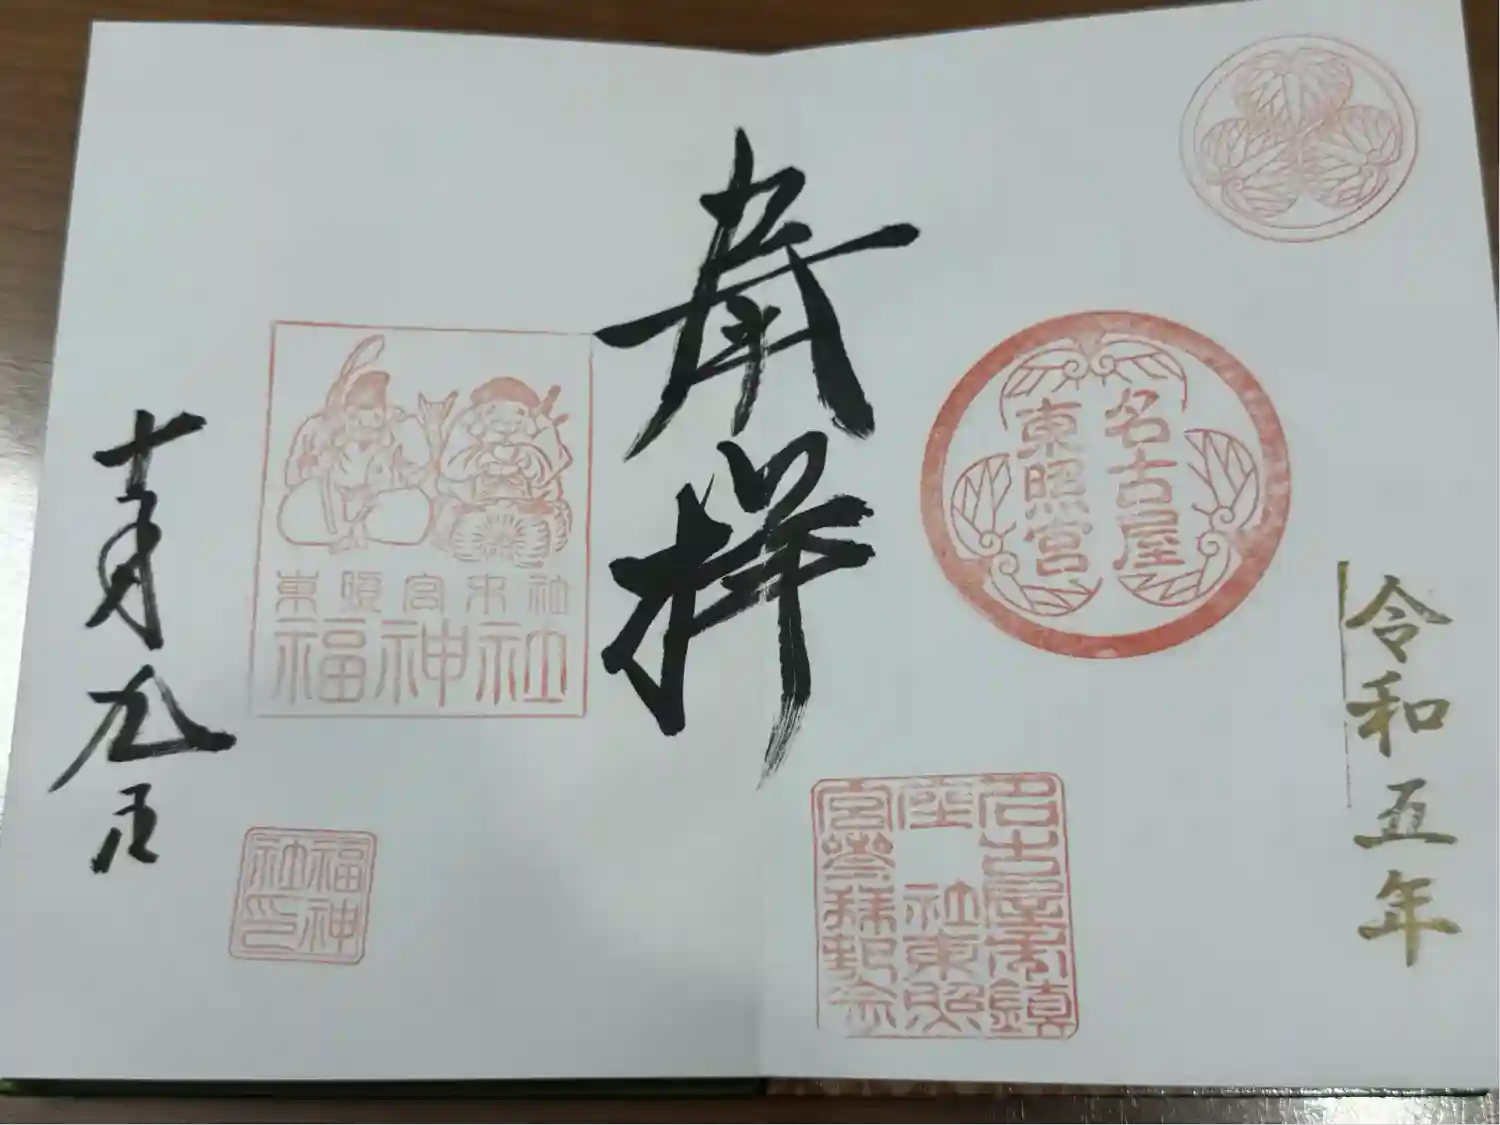 令和五年
名古屋
東照宮
名古屋市鎮
座 社東照
宮參拜記念
奉拝
東照宮末社
福神社
九日
福神
社印